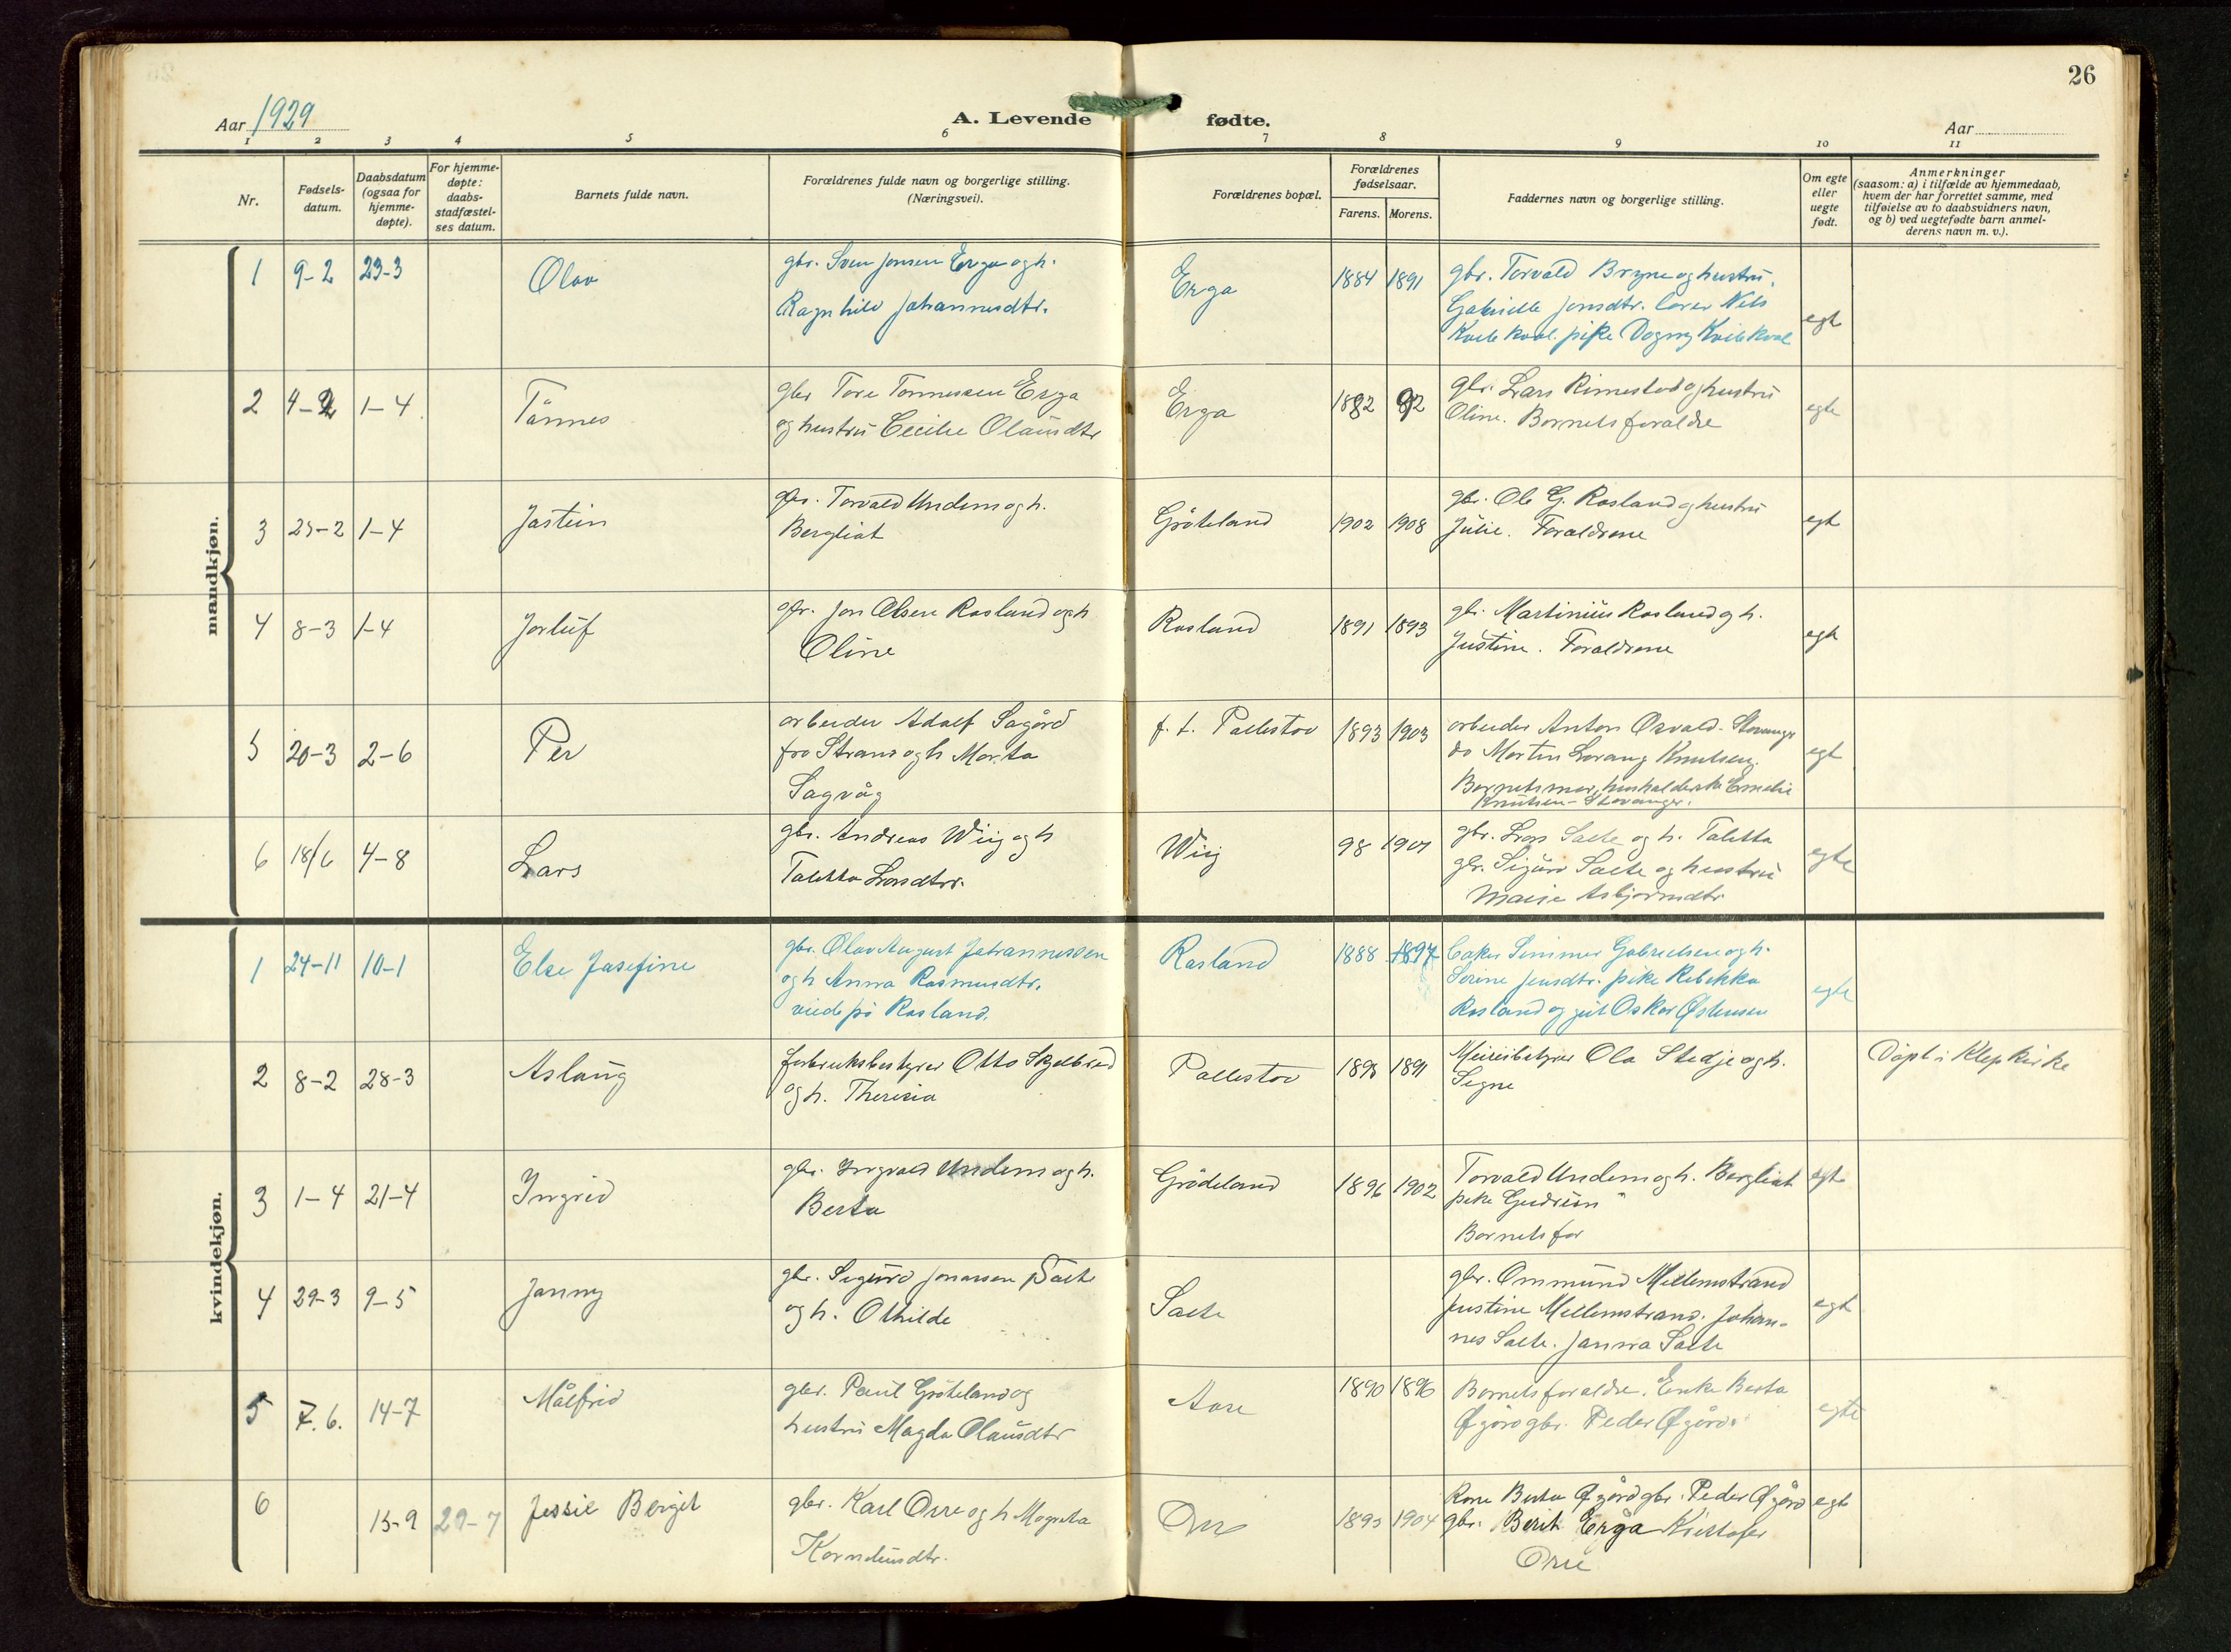 26
Aar 1929
A. Levende fødte.
Aar
1 2 3 4 5 6 7 8 9 10 11
Nr.
Fødsels-
datum.
Daabsdatum
(ogsaa for
hjemme-
døpte).
For hjemme-
døpte:
daabs-
stadfæstel-
ses datum.
Barnets fulde navn.
Forældrenes fulde navn og borgerlige stilling.
(Næringsvei).
Forældrenes bopæl.
Forældrenes
fødselsaar.
Farens. Morens.
Faddernes navn og borgerlige stilling.
Om egte
eller
uegte
født.
Anmerkninger
(saasom: a) i tilfælde av hjemmedaab,
hvem der har forrettet samme, med
tilføielse av to daabsvidners navn,
og b) ved uegtefødte barn anmel-
derens navn m. v.).
mandkjøn.
1 9-2 23-3 Olav
gbr. Sven Jonsen Erga og h.
Ragnhild Johannesdtr.
Erga 1884 1891
gbr. Torvald Bryne og hustru
Gabrielle Jonsdtr. lærer Nils
Kvelekval. pike Dagny Kvelekval
egt
2 4-2 1-4 Tönnes
gbr Tore Tonnessen Erga
og hustru Cecilie Olausdtr
Erga 1882 92
gbr. Lars Rimestad og hustru
Oline. Barnets foraldre
egte
3 25-2 1-4 Jostein
gbr. Torvald Undem og h.
Bergliot
Gröteland 1902 1908
gbr. Ole G. Rosland og hustru
Julie. Foraldrene
egt
4 8-3 1-4 Jorluf
gbr. Jon Olsen Rosland og h
Oline
Rosland 1891 1893
gbr. Martinius Rosland og h.
Justine. Foraldrene
egt
5 20-3 2-6 Per
arbeider Adolf Sagård
fra Strand og h Marta
Sagvåg
f. t. Pallestov 1893 1903
arbeider Anton Osvald - Stavanger
do Martin Lorang Knutsen.
Barnets mor, husholderske Emelie
Knutsen - Stavanger.
egt
6 18/6 4-8 Lars
gbr. Andreas Wiig og h
Taletta Larsdtr.
Wiig 98 1901
gbr. Lars Salte og h. Taletta
gbr. Sigurd Salte og hustru
Marie Asbjørnsdtr
egte
kvindekjøn.
1 24-11 10-1 Else Josefine
gbr. Olav August Johannessen
og h Anna Rasmusdtr.
viede på Rosland.
Rosland 1888 1897
Simmer Gabrielsen og h.
Serine Jensdtr. pike Rebekka
Rosland og gut Oskar Østensen
egte
2 8-2 28-3 Aslaug
fabrikksbestyrer Otto Skjelbred
og h. Theresia
Pallestov 1895 1891
Meieribestyrer Ola Stedje og h.
Signe
Döpt i Klep kirke
3 1-4 21-4 Ingrid
gbr. Ingvald Undem og h.
Berta
Grödeland 1896 1902
Torvald Undem og h. Bergliot
pike Gudrun "
Barnets far
egte
4 29-3 9-5 Janny
gbr. Sigurd Jonassen Salte
og h. Othilde
Salte
gbr. Ommund Mellemstrand
Justine Mellemstrand. Johan-
nes Salte. Janna Salte
egt
5 7. 6. 14-7 Målfrid
gbr. Paul Gröteland og
hustru Magda Olausdtr
Aare 1890 1896
Barnets foraldre. Enke Berta
Øgård gbr. Peder Øgård.
egte
6 15-9 29-7 Jessie Bergit
gbr. Karl Orre og h Magreta
Korneliusdtr.
Orre 1893 1904
Kone Berta Øgård gbr. Peder Øgård
gbr. Berit Erga Kristofer
Orre
egt